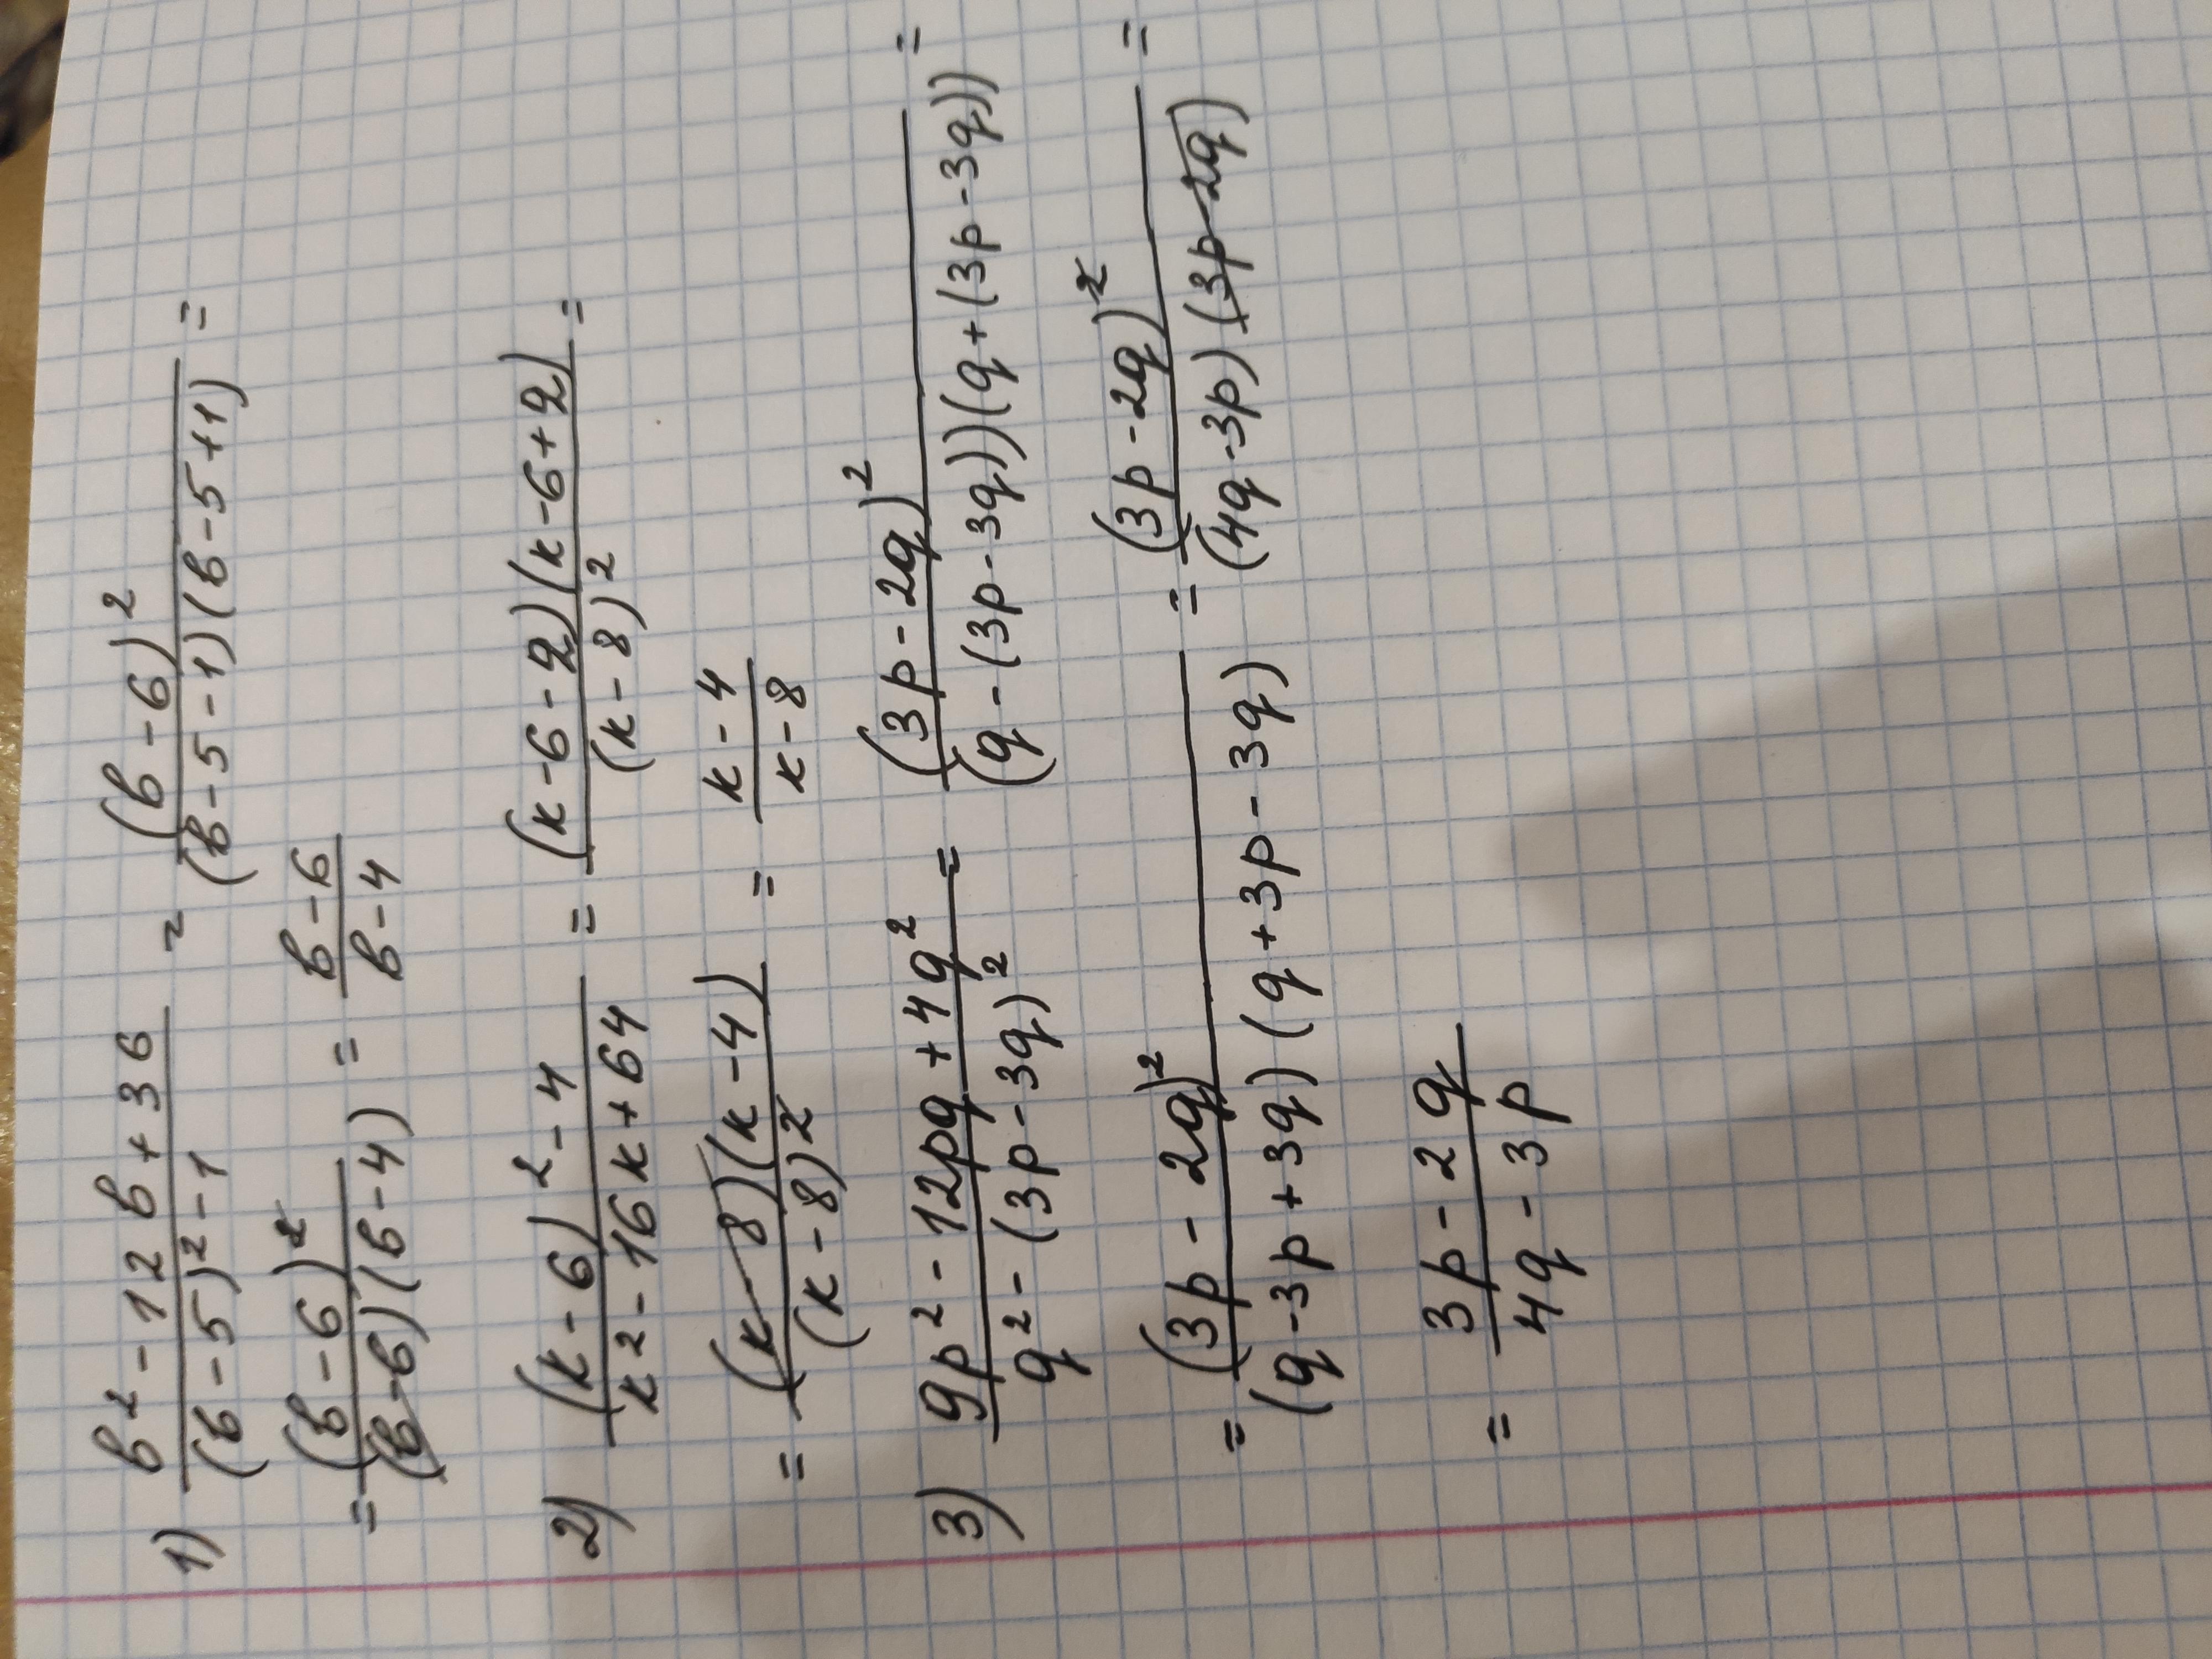 1) (b² - 12b + 36)/((b - 5)² - 1) = (b - 6)²/((b - 5 - 1)(b - 5 + 1)) =
= (b - 6)²/((b - 6)(b - 4)) = (b - 6)/(b - 4)
2) ((k - 6)² - 4)/(k² - 16k + 64) = ((k - 6 - 2)(k - 6 + 2))/(k - 8)² =
= ((k - 8)(k - 4))/(k - 8)² = (k - 4)/(k - 8)
3) (9p² - 12pq + 4q²)/(q² - (3p - 3q)²) = (3p - 2q)²/((q - (3p - 3q))(q + (3p - 3q))) =
= (3p - 2q)²/((q - 3p + 3q)(q + 3p - 3q)) = (3p - 2q)²/((4q - 3p)(3p - 2q)) =
= (3p - 2q)/(4q - 3p)